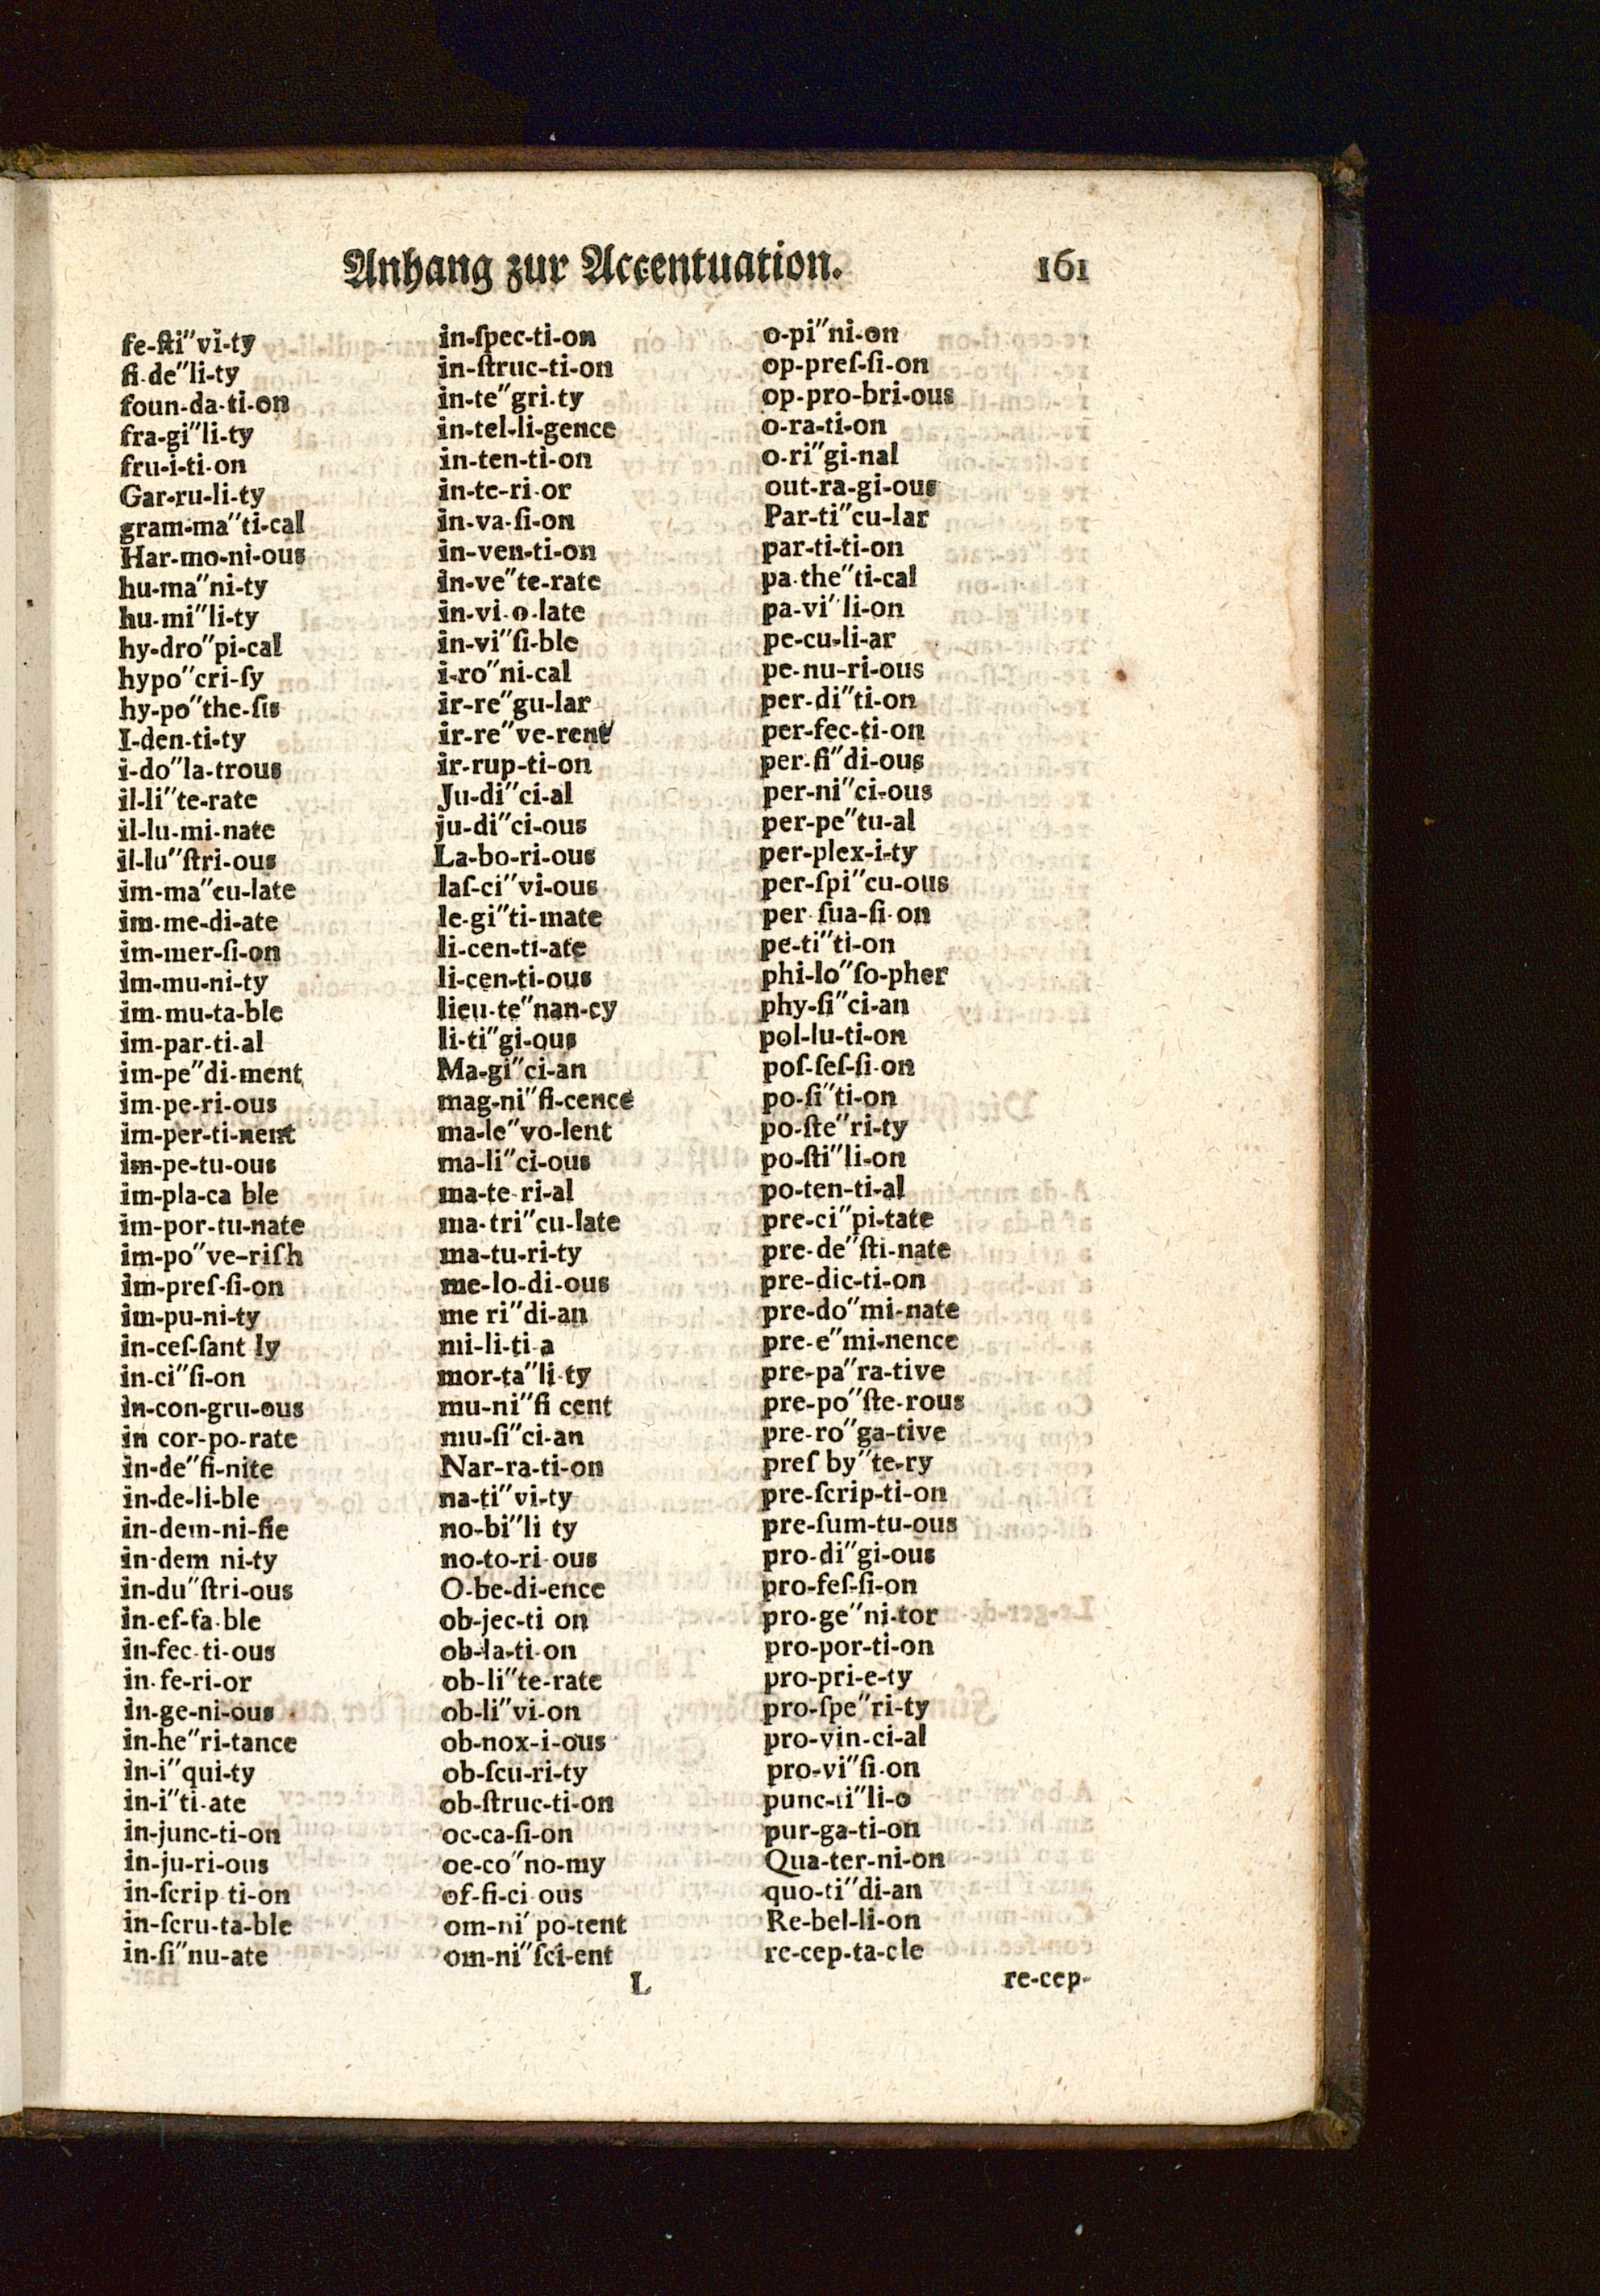 Anhang zur Accentuation. 161
fe-ſti"vi-ty
fi-de"li-ty
foun-da-ti-on
fra-gi"li-ty
fru-i-ti-on
Gar-ru-li-ty
gram-ma"ti-cal
Har-mo-ni-ous
hu-ma"ni-ty
hu-mi"li-ty
hy-dro"pi-cal
hypo"cri-ſy
hy-po"the-ſis
I-den-ti-ty
i-do"la-trous
il-li"te-rate
il-lu-mi-nate
il-lu"ſtri-ous
im-ma"cu-late
im-me-di-ate
im-mer-ſi-on
im-mu-ni-ty
im-mu-ta-ble
im-par-ti-al
im-pe"di-ment
im-pe-ri-ous
im-per-ti-nent
im-pe-tu-ous
im-pla-ca ble
im-por-tu-nate
im-po"ve-riſh
im-preſ-ſi-on
im-pu-ni-ty
in-ceſ-ſant ly
in-ci"ſi-on
in-con-gru-ous
in cor-po-rate
in-de"fi-nite
in-de-li-ble
in-dem-ni-fie
in-dem ni-ty
in-du"ſtri-ous
in-ef-fa-ble
in-fec-ti-ous
in-fe-ri-or
in-ge-ni-ous
in-he"ri-tance
in-i"qui-ty
in-i"ti-ate
in-junc-ti-on
in-ju-ri-ous
in-ſcrip ti-on
in-ſcru-ta-ble
in-ſi"nu-ate
in-ſpec-ti-on
in-ſtruc-ti-on
in-te"gri-ty
in-tel-li-gence
in-ten-ti-on
in-te-ri-or
in-va-ſi-on
in-ven-ti-on
in-ve"te-rate
in-vi-o-late
in-vi"ſi-ble
i-ro"ni-cal
ir-re"gu-lar
ir-re"ve-rent
ir-rup-ti-on
Ju-di"ci-al
ju-di"ci-ous
La-bo-ri-ous
laſ-ci"vi-ous
le-gi"ti-mate
li-cen-ti-ate
li-cen-ti-ous
lieu-te"nan-cy
li-ti"gi-ous
Ma-gi"ci-an
mag-ni"fi-cence
ma-le"vo-lent
ma-li"ci-ous
ma-te-ri-al
ma-tri"cu-late
ma-tu-ri-ty
me-lo-di-ous
me ri"di-an
mi-li-ti-a
mor-ta"li-ty
mu-ni"fi cent
mu-ſi"ci-an
Nar-ra-ti-on
na-ti"vi-ty
no-bi"li ty
no-to-ri-ous
O-be-di-ence
ob-jec-ti on
ob-la-ti-on
ob-li"te-rate
ob-li"vi-on
ob-nox-i-ous
ob-ſcu-ri-ty
ob-ſtruc-ti-on
oc-ca-ſi-on
oe-co"no-my
of-fi-ci ous
om-ni'po-tent
om-ni"ſci-ent
o-pi"ni-on
op-preſ-ſi-on
op-pro-bri-ous
o-ra-ti-on
o-ri"gi-nal
out-ra-gi-ous
Par-ti"cu-lar
par-ti-ti-on
pa-the"ti-cal
pa-vi'li-on
pe-cu-li-ar
pe-nu-ri-ous
per-di"ti-on
per-fec-ti-on
per-fi"di-ous
per-ni"ci-ous
per-pe"tu-al
per-plex-i-ty
per-ſpi"cu-ous
per ſua-ſi-on
pe-ti"ti-on
phi-lo"ſo-pher
phy-ſi"ci-an
pol-lu-ti-on
poſ-ſeſ-ſi-on
po-ſi"ti-on
po-ſte"ri-ty
po-ſti"li-on
po-ten-ti-al
pre-ci"pi-tate
pre-de"ſti-nate
pre-dic-ti-on
pre-do"mi-nate
pre-e"mi-nence
pre-pa"ra-tive
pre-po"ſte-rous
pre-ro"ga-tive
preſ by"te-ry
pre-ſcrip-ti-on
pre-ſum-tu-ous
pro-di"gi-ous
pro-feſ-ſi-on
pro-ge"ni-tor
pro-por-ti-on
pro-pri-e-ty
pro-ſpe"ri-ty
pro-vin-ci-al
pro-vi"ſi-on
punc-ti"li-o
pur-ga-ti-on
Qua-ter-ni-on
quo-ti"di-an
Re-bel-li-on
re-cep-ta-cle
L re-cep-